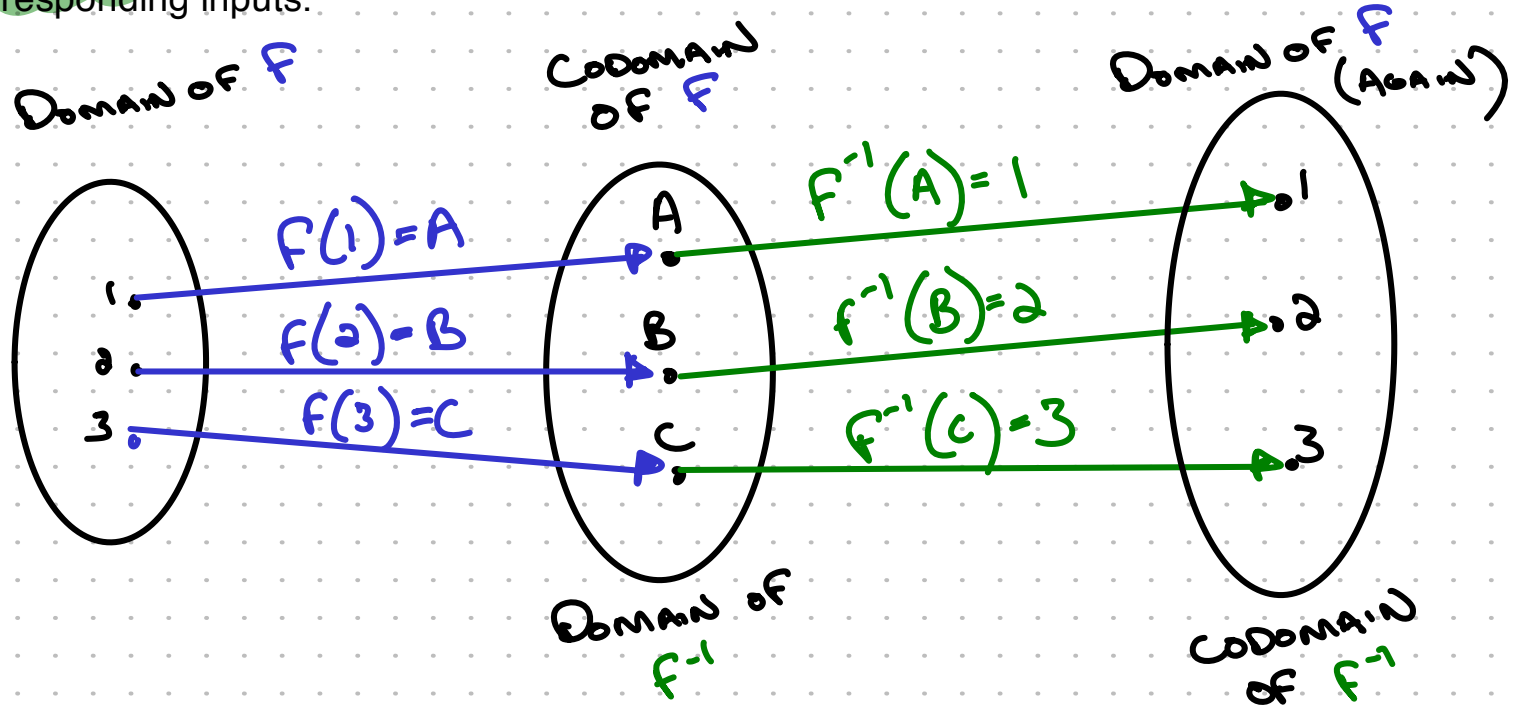 responding inputs.
DOMAIN OF F
CODOMAIN
OF F
DOMAIN OF F
(AGAIN)
F(1)=A
F(2)=B
F(3)=C
1
2
3
A
B
C
F⁻¹(A)=1
F⁻¹(B)=2
F⁻¹(C)=3
1
2
3
DOMAIN OF
F⁻¹
CODOMAIN
OF F⁻¹